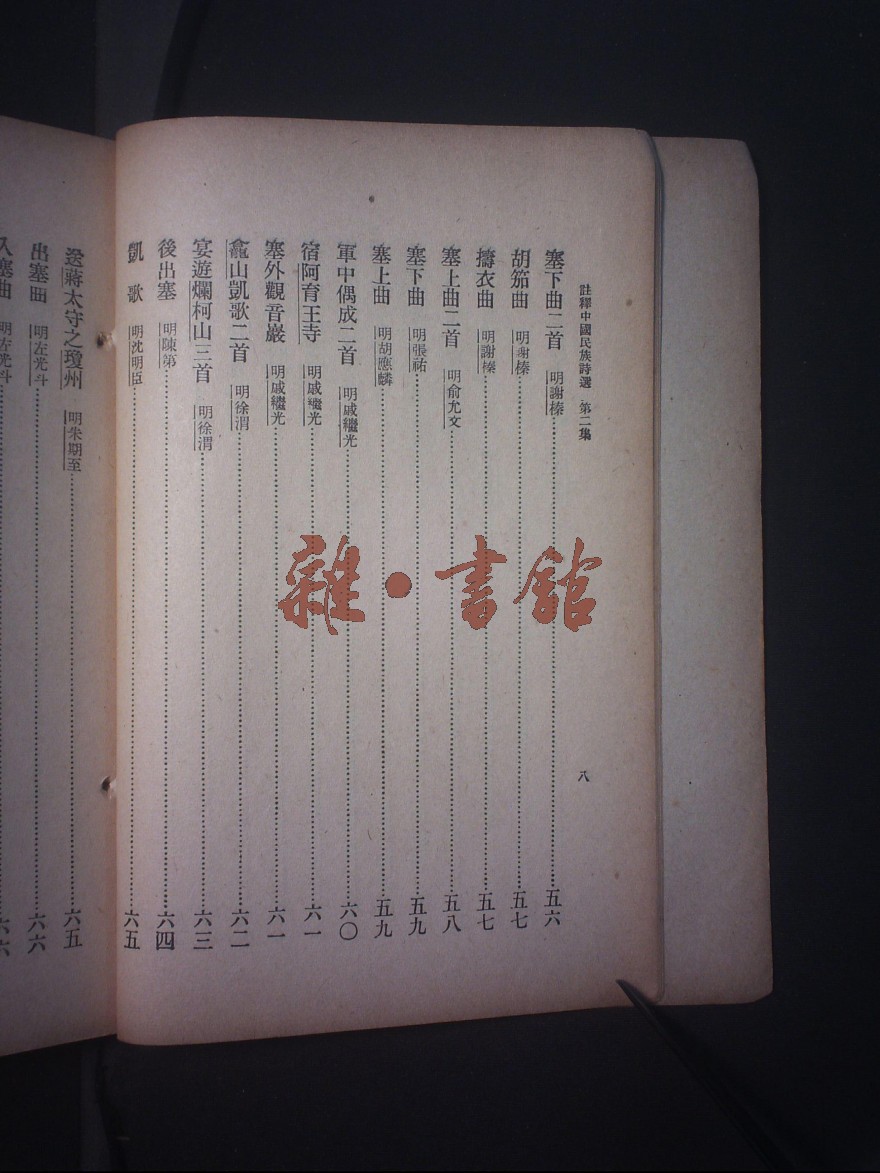 註釋中國民族詩選 第二集
八
塞下曲二首 明謝榛 五六
胡笳曲 明謝榛 五七
擣衣曲 明謝榛 五七
塞上曲二首 明俞允文 五八
塞下曲 明張祐 五九
塞上曲 明胡應麟 五九
軍中偶成二首 明戚繼光 六〇
宿阿育王寺 明戚繼光 六一
塞外觀音巖 明戚繼光 六一
龕山凱歌二首 明徐渭 六二
宴遊爛柯山三首 明徐渭 六三
後出塞 明陳第 六四
凱歌 明沈明臣 六五
送蔣太守之瓊州 明朱期至 六五
出塞曲 明左光斗 六六
入塞曲 明左光斗 六六
雜・書館